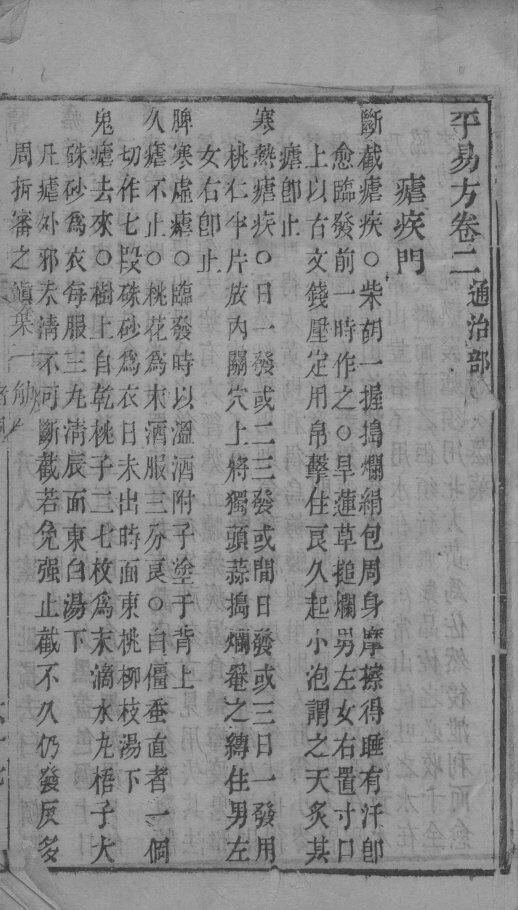 平易方卷二 通治部
瘧疾門
斷截瘧疾○柴胡一握搗爛絹包周身摩擦得睡有汗卽
愈臨發前一時作之○旱蓮草搥爛男左女右置寸口
上以古文錢壓定用帛擊住良久起小泡謂之天炙其
瘧卽止
寒熱瘧疾○日一發或二三發或間日發或三日一發用
桃仁半片放內關穴上將獨頭蒜搗爛罨之縛住男左
女右卽止
脾寒虛瘧○臨發時以溫酒附子塗于背上
久瘧不止○桃花爲末酒服三分良○白僵蚕直者一個
切作七段硃砂爲衣日未出時面東桃柳枝湯下
鬼瘧去來○樹上自乾桃子二七枚爲末滴水丸梧子大
硃砂爲衣每服三丸淸辰面東白湯下
凡瘧外邪未淸不可斷截若免强止截不久仍發反多
周折審之愼